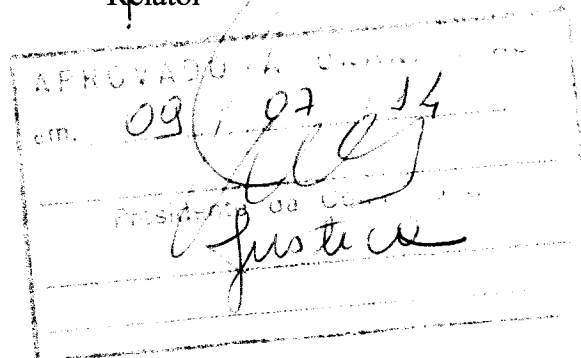 Relator
APROVADO A
em. 09 / 07 / 14
Presidente da
Justica